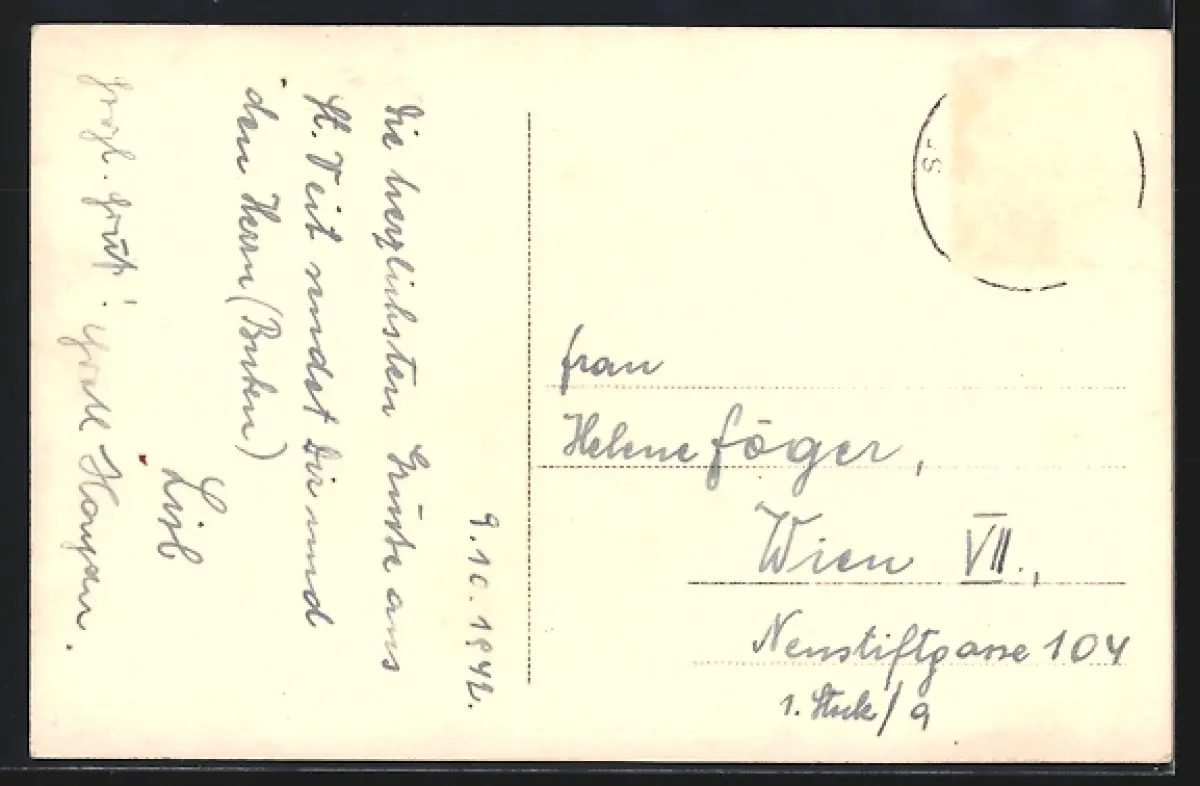 9.10.1942.
Die herzlichsten Grüsse aus
St. Veit sendet Dir und
den Herrn (Buben)
Lisl
herzl. Gruß!
Frau
Helene Föger,
Wien VII.,
Neustiftgasse 104
1. Stock/9